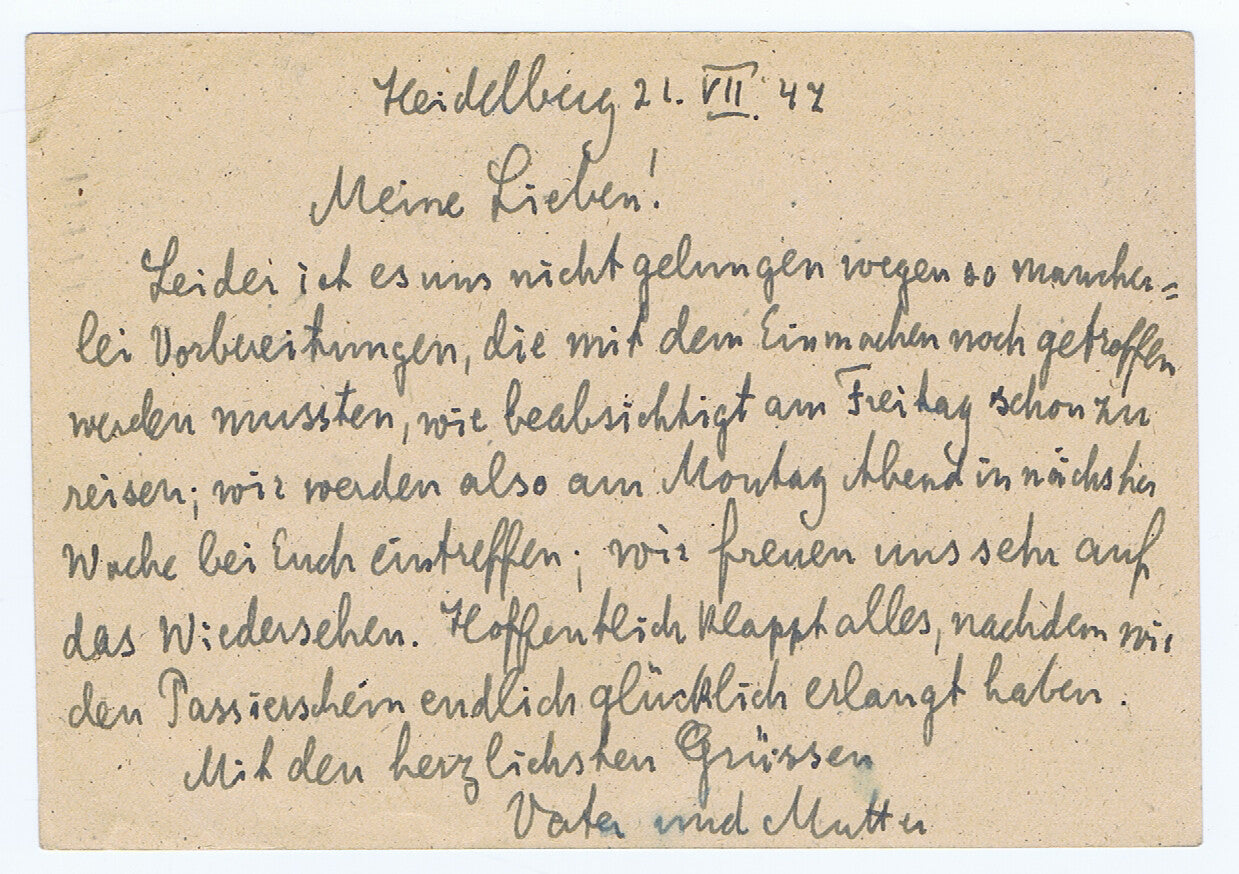 Heidelberg 21. VII. 47
Meine Lieben!
Leider ist es uns nicht gelungen wegen so mancher=
lei Vorbereitungen, die mit dem Einmachen noch getroffen
werden mussten, wie beabsichtigt am Freitag schon zu
reisen; wir werden also am Montag Abend in nächster
Woche bei Euch eintreffen; wir freuen uns sehr auf
das Wiedersehen. Hoffentlich klappt alles, nachdem wir
den Passierschein endlich glücklich erlangt haben.
Mit den herzlichsten Grüssen
Vater und Mutter